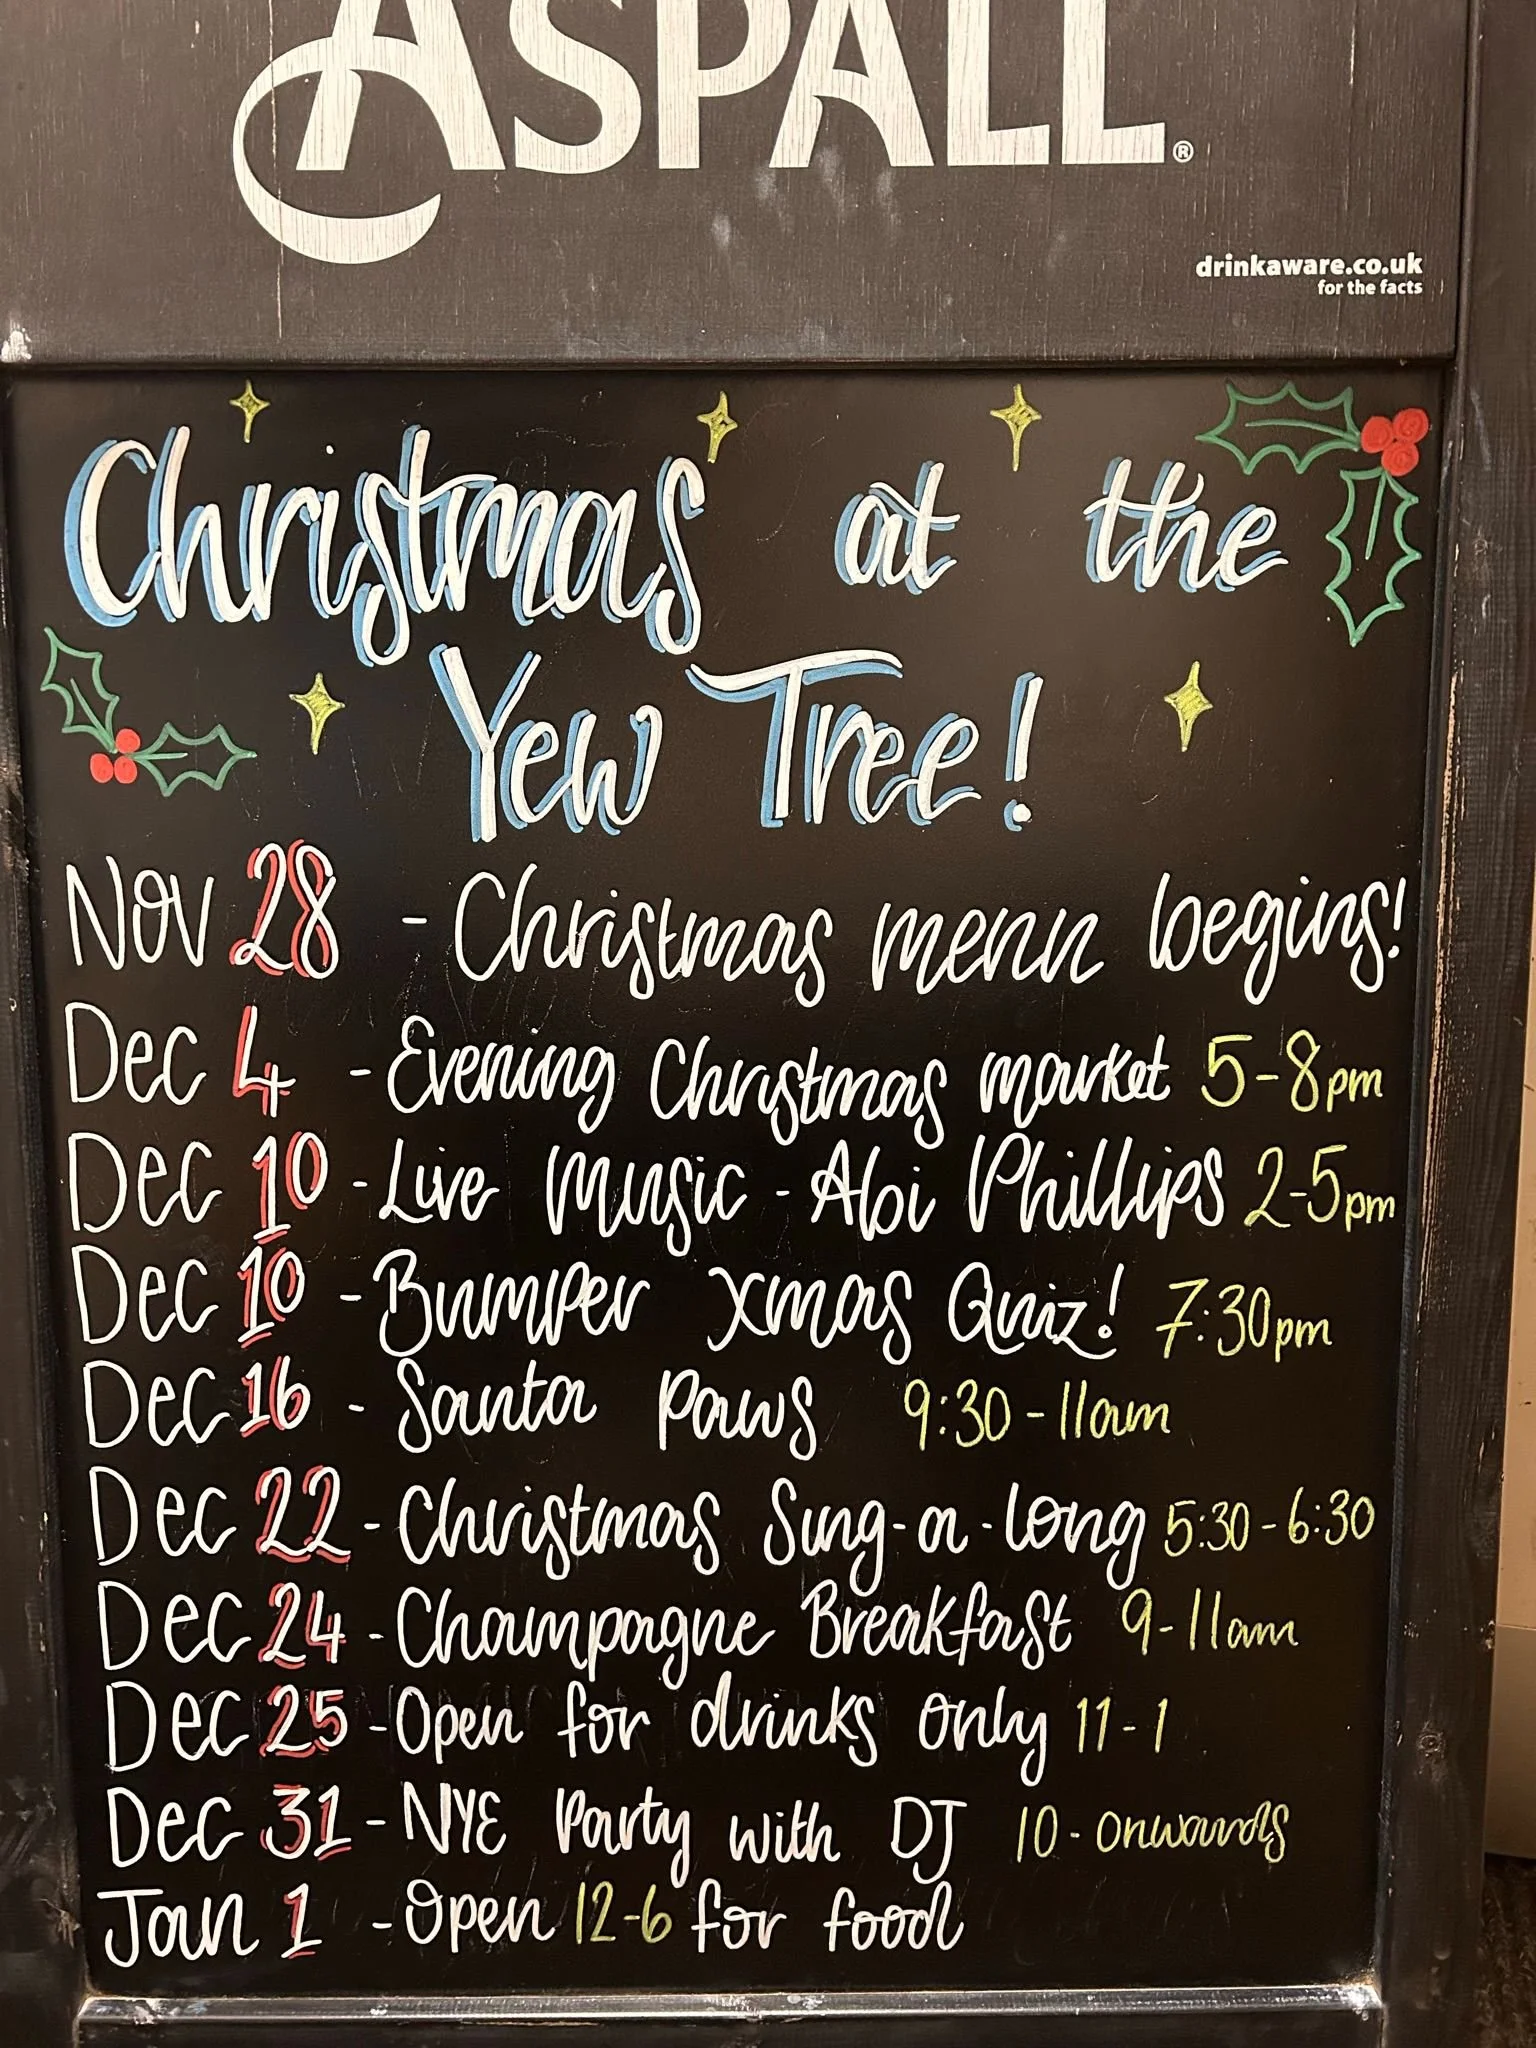 ASPALL®
drinkaware.co.uk
for the facts
Christmas at the
Yew Tree!
Nov 28 - Christmas menu begins!
Dec 4 - Evening Christmas market 5-8pm
Dec 10 - Live Music - Abi Phillips 2-5pm
Dec 10 - Bumper Xmas Quiz! 7:30pm
Dec 16 - Santa Paws 9:30-11am
Dec 22 - Christmas Sing-a-long 5:30-6:30
Dec 24 - Champagne Breakfast 9-11am
Dec 25 - Open for drinks only 11-1
Dec 31 - NYE Party with DJ 10-onwards
Jan 1 - Open 12-6 for food